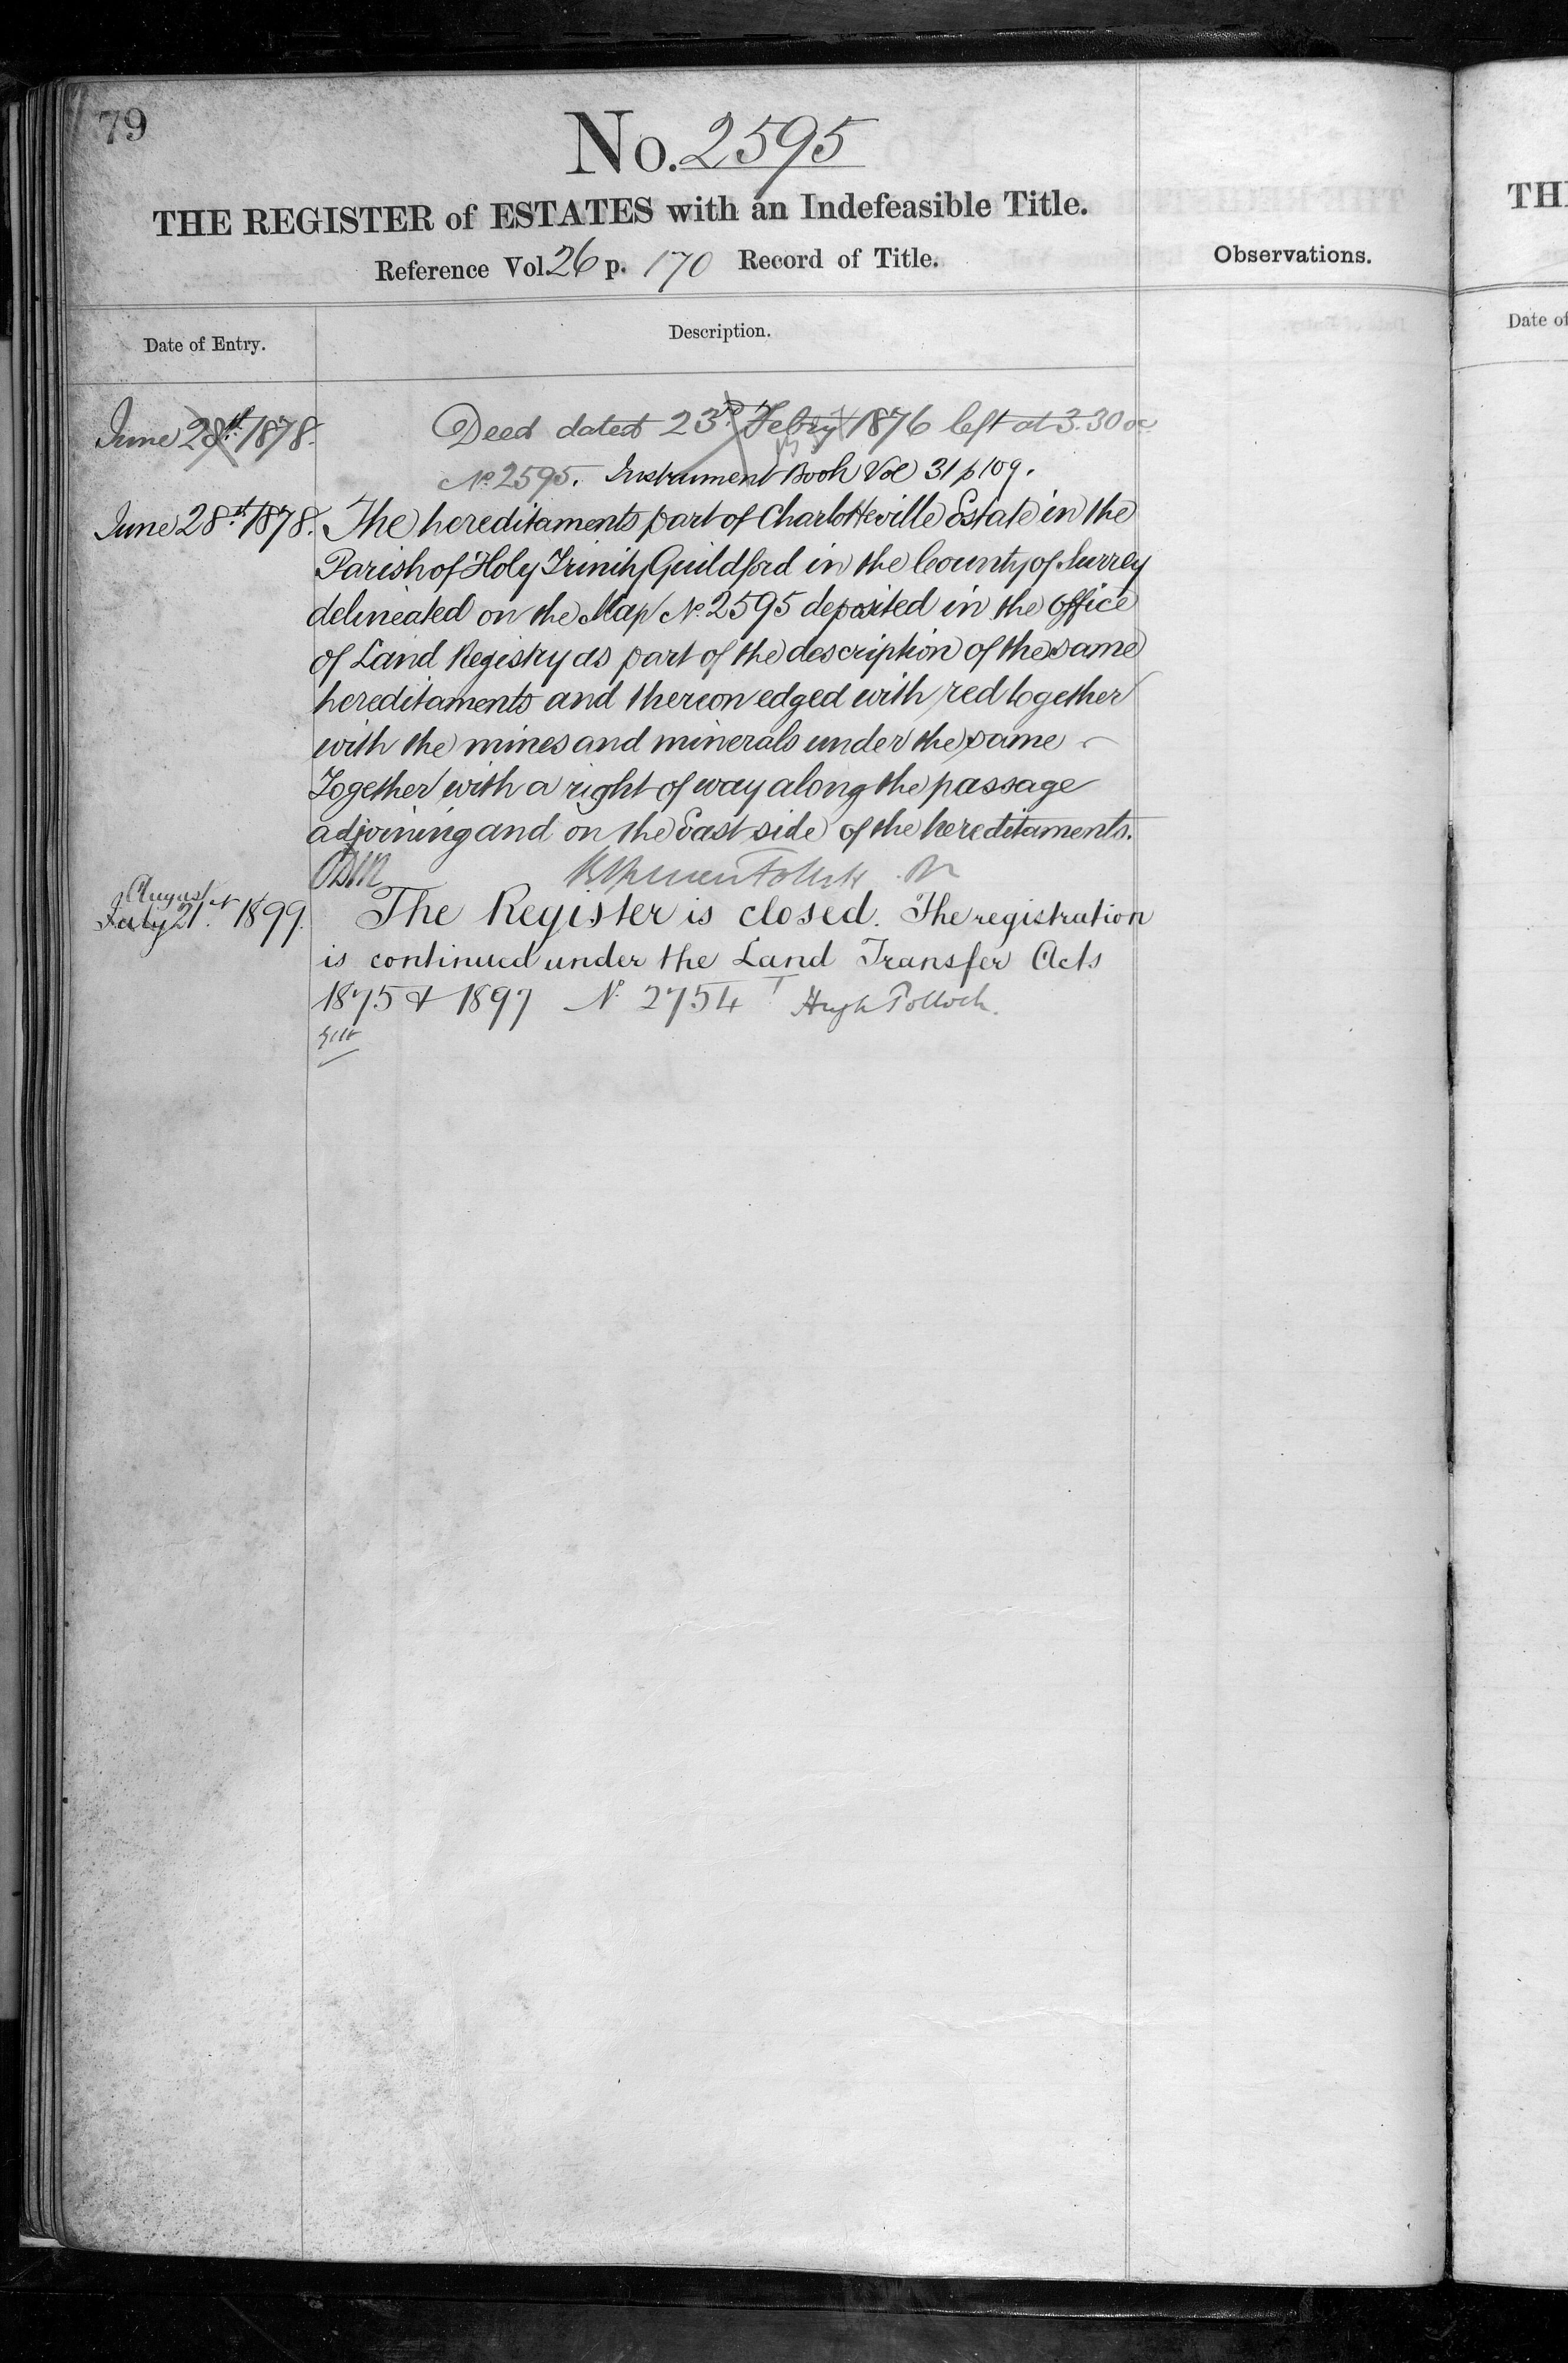 79
No. 2595
THE REGISTER of ESTATES with an Indefeasible Title.
Reference Vol. 26 p. 170 Record of Title.
Observations.
Date of Entry.
Description.
June 28th 1878. Deed dated 23rd Febry 1876 left at 3.30 oc
No. 2595. Instrument Book Vol 31 p 109.
June 28th 1878. The hereditaments part of Charlotteville Estate in the
Parish of Holy Trinity Guildford in the County of Surrey
delineated on the Map No. 2595 deposited in the office
of Land Registry as part of the description of the same
hereditaments and thereon edged with red together
with the mines and minerals under the same
Together with a right of way along the passage
adjoining and on the East side of the hereditaments.
August
July 21st 1899. The Register is closed. The registration
is continued under the Land Transfer Acts
1875 & 1897 No. 2754 Hugh Pollock.
TH
Date of